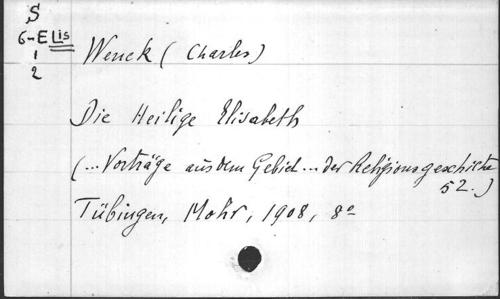 S
6-Elis
1
2
Wenck (Charles)
Die Heilige Elisabeth
(... Vorträge aus dem Gebiet ... der Religionsgeschichte
52.)
Tübingen, Mohr, 1908, 8°